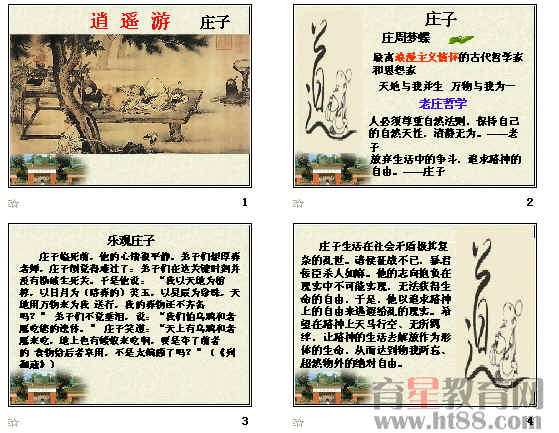 逍遥游 庄子
1
庄子
庄周梦蝶
最富浪漫主义情怀的古代哲学家
和思想家
天地与我并生 万物与我为一
老庄哲学
人必须尊重自然法则，保持自己
的自然天性，清静无为。——老
子
放弃生活中的争斗，追求精神的
自由。——庄子
2
乐观庄子
庄子临死前，他的心情很平静。弟子们想厚葬
老师，庄子倒觉得难过了：弟子们在这关键时刻并
没有勘破生死关。于是他说：“我以天地为棺
椁，以日月为（陪葬的）美玉，以星辰为珍珠，天
地用万物来为我 送行，我的葬物还不齐备
吗？” 弟子们不觉垂泪，说：“我们怕乌鸦和老
鹰吃您的遗体。” 庄子笑道：“天上有乌鸦和老
鹰来吃，地上也有蝼蚁来吃啊，要是夺了前者
的 食物给后者享用，不是太偏颇了吗？”（《列
御寇》）
3
庄子生活在社会矛盾极其复
杂的乱世。诸侯征战不已，暴君
佞臣杀人如麻。他的志向抱负在
现实中不可能实现，无法获得生
命的自由，于是，他以追求精神
上的自由来逃避纷乱的现实。希
望在精神上天马行空、无所羁
绊，让精神的生去解放作为形
体的生命，从而达到物我两忘、
超然物外的绝对自由。
4
育星教育网
www.ht88.com